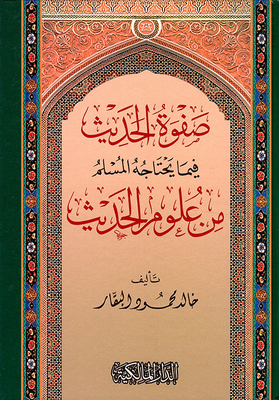 صَفْوَةُ الحَدِيث
فِيمَا يَحْتَاجُهُ المُسْلِمُ
مِنْ عُلُومِ الحَدِيْث
تأليف
خالد محمود البقار
الدار المالكية